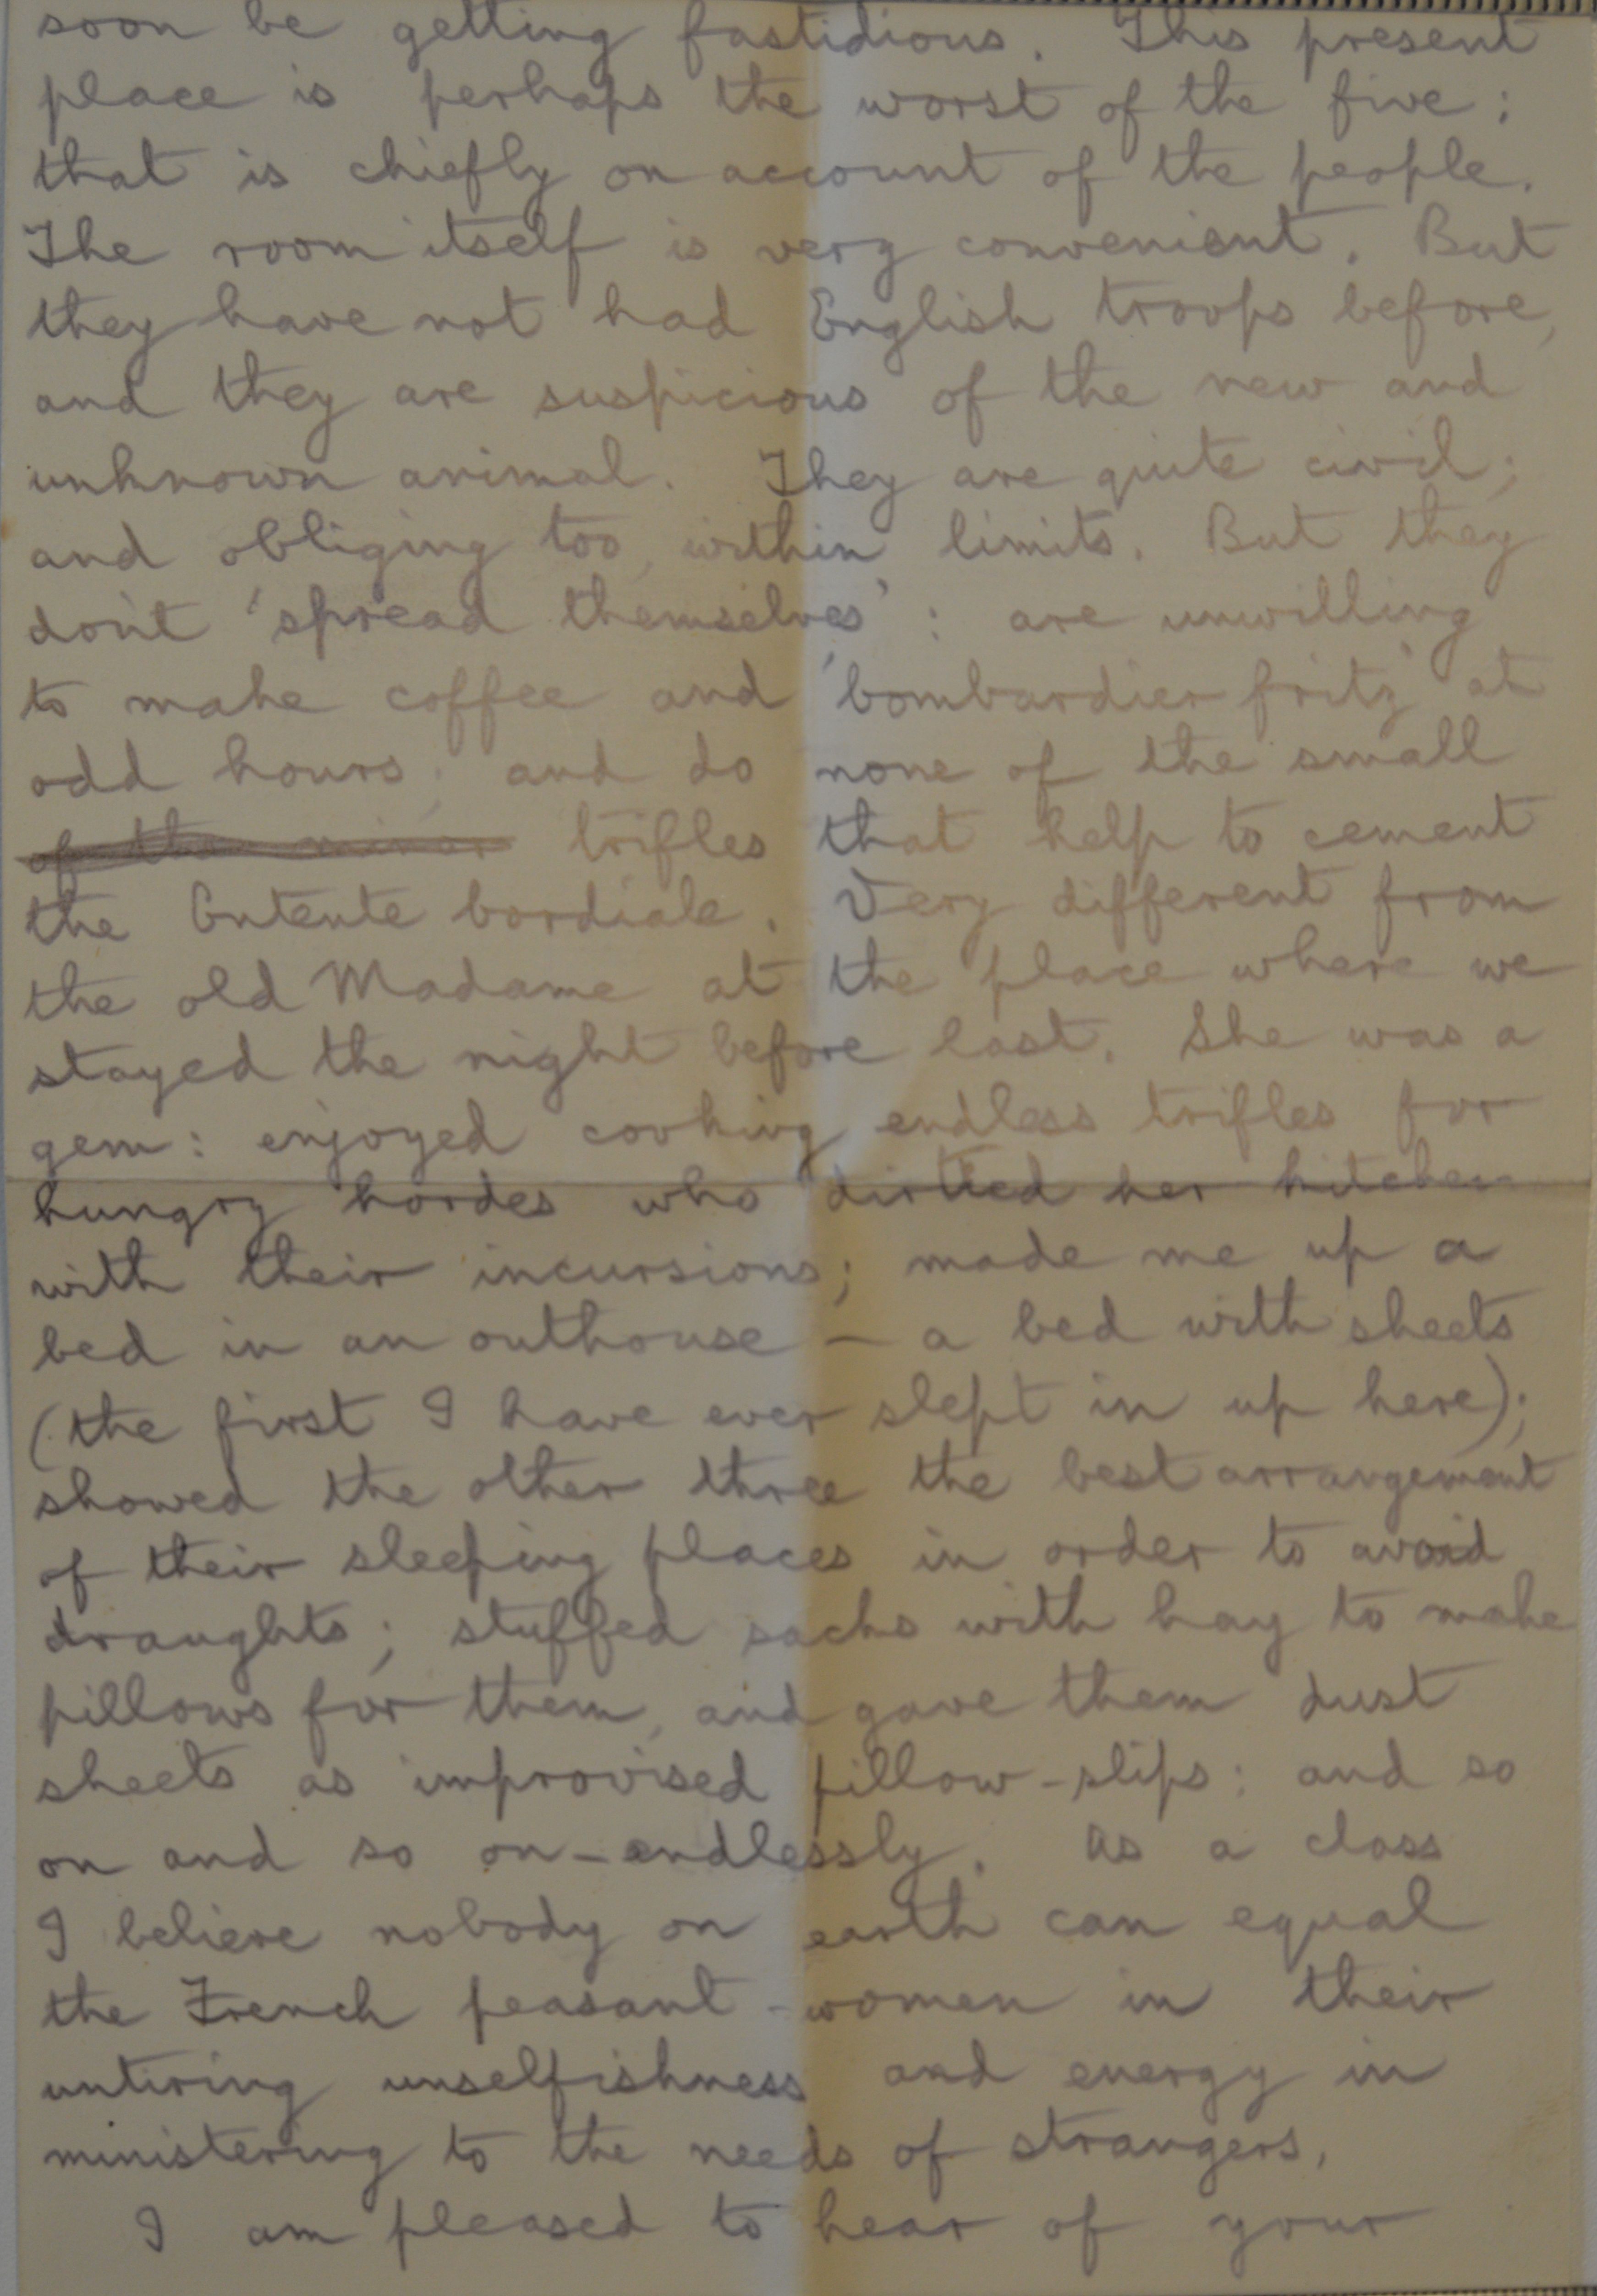 soon be getting fastidious. This present
place is perhaps the worst of the five;
that is chiefly on account of the people.
The room itself is very convenient. But
they have not had English troops before,
and they are suspicious of the new and
unknown animal. They are quite civil;
and obliging too, within limits. But they
don't 'spread themselves': are unwilling
to make coffee and 'bombardier fritz' at
odd hours; and do none of the small
of the minor trifles that help to cement
the Entente Cordiale. Very different from
the old Madame at the place where we
stayed the night before last. She was a
gem: enjoyed cooking endless trifles for
hungry hordes who dirtied her kitchen
with their incursions; made me up a
bed in an outhouse – a bed with sheets
(the first I have ever slept in up here);
showed the other three the best arrangement
of their sleeping places in order to avoid
draughts; stuffed sacks with hay to make
pillows for them, and gave them dust
sheets as improvised pillow-slips: and so
on and so on – endlessly. As a class
I believe nobody on earth can equal
the French peasant-women in their
untiring unselfishness and energy in
ministering to the needs of strangers.
I am pleased to hear of your